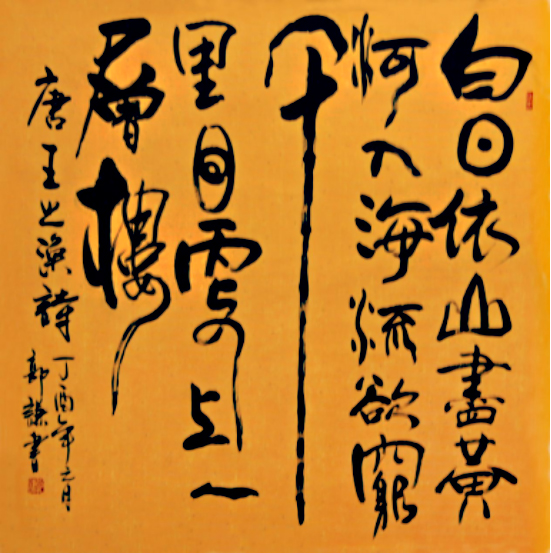 白日依山盡黄
河入海流欲窮
千
里目更上一
層樓
唐王之渙詩
丁酉年 月
郭謙書